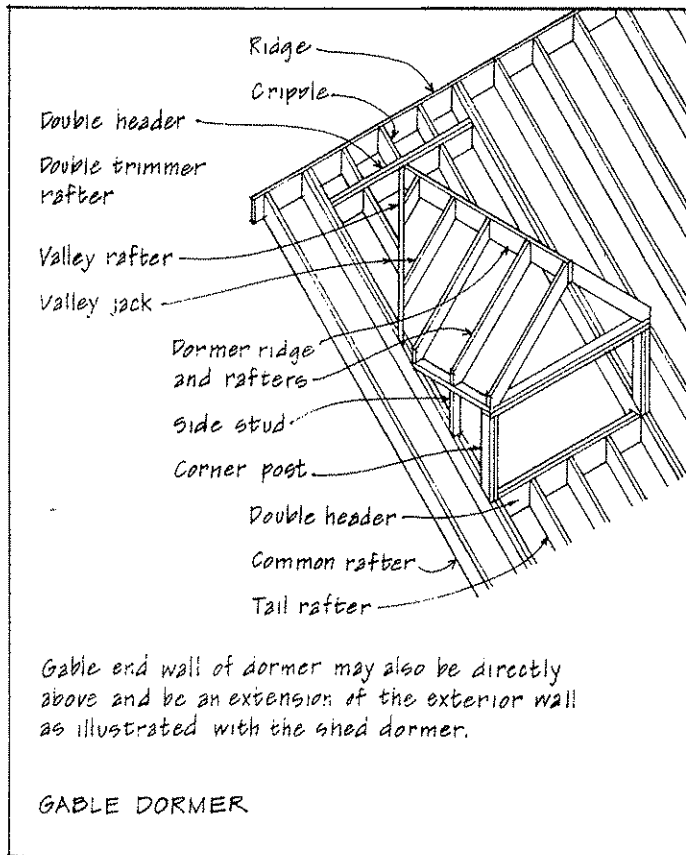 Ridge
Cripple
Double header
Double trimmer
rafter
Valley rafter
Valley jack
Dormer ridge
and rafters
Side stud
Corner post
Double header
Common rafter
Tail rafter
Gable end wall of dormer may also be directly
above and be an extension of the exterior wall
as illustrated with the shed dormer.
GABLE DORMER